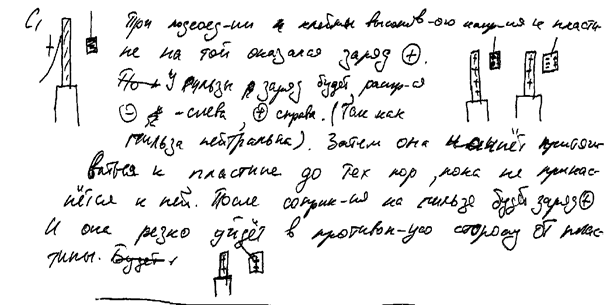 C1 При подсоед-нии к клеммы высоков-ого напр-ия к пласти
не на той оказался заряд ⊕.
По У гильзы заряд будет распр-ся
⊖ -слева, ⊕ справа. (Так как
гильза нейтральна). Затем она начнёт притяги
ваться к пластине до тех пор, пока не прикас-
нётся к ней. После соприк-ия на гильзе будет заряд ⊕
И она резко уйдёт в противоп-ую сторону от плас-
тины. Будет